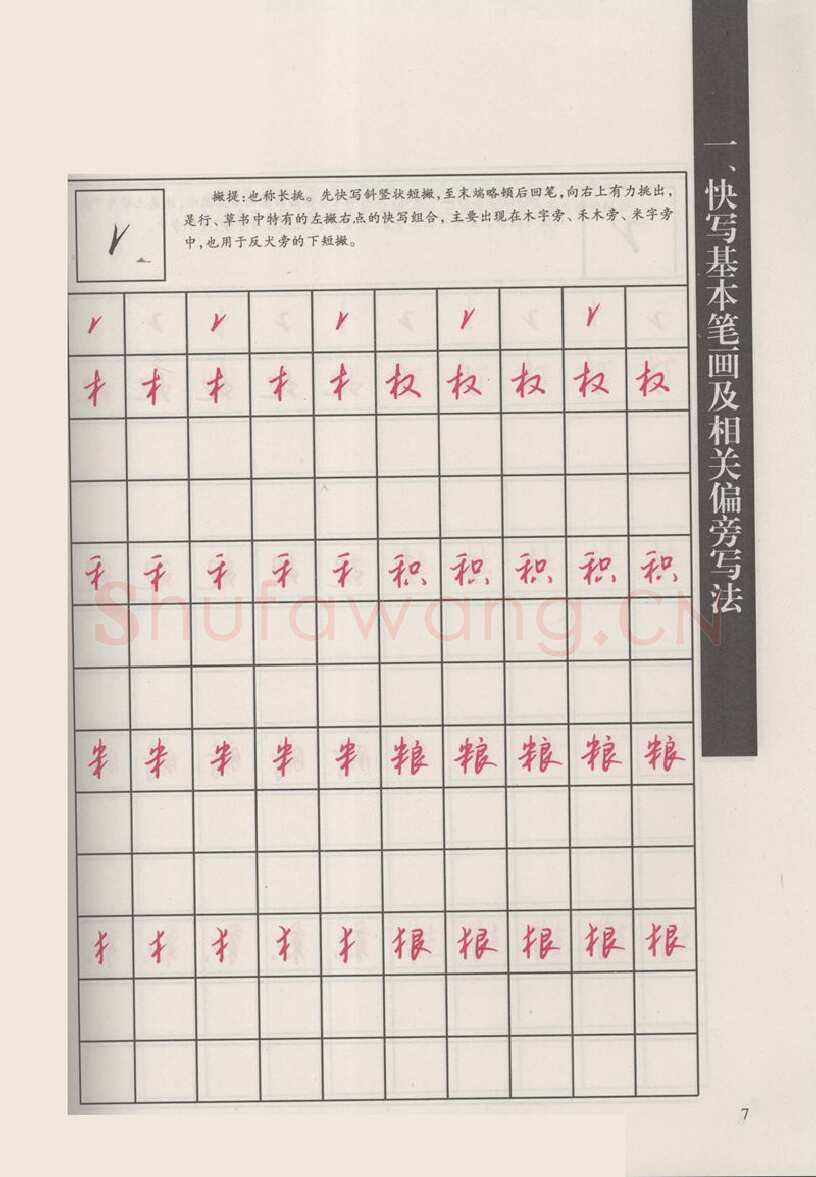 撇提:也称长挑。先快写斜竖状短撇,至末端略顿后回笔,向右上有力挑出,
是行、草书中特有的左撇右点的快写组合,主要出现在木字旁、禾木旁、米字旁
中,也用于反犬旁的下短撇。
一、快写基本笔画及相关偏旁写法
木 木 木 木 木 权 权 权 权 权
禾 禾 禾 禾 禾 积 积 积 积 积
Shufawang.CN
米 米 米 米 米 粮 粮 粮 粮 粮
犭 犭 犭 犭 犭 狠 狠 狠 狠 狠
7